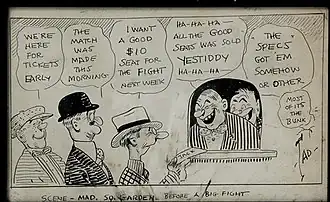 WE'RE
HERE
FOR
TICKETS
EARLY
THE
MATCH
WAS
MADE
THIS
MORNING
I WANT
A GOOD
$10
SEAT FOR
THE FIGHT
NEXT WEEK
HA-HA-HA-
ALL THE GOOD
SEATS WAS SOLD
YESTIDDY
HA-HA-HA-
THE
SPECS
GOT 'EM
SOMEHOW
OR OTHER
MOST
OF IT'S
THE
BUNK
SCENE - MAD. SQ. GARDEN BEFORE A BIG FIGHT